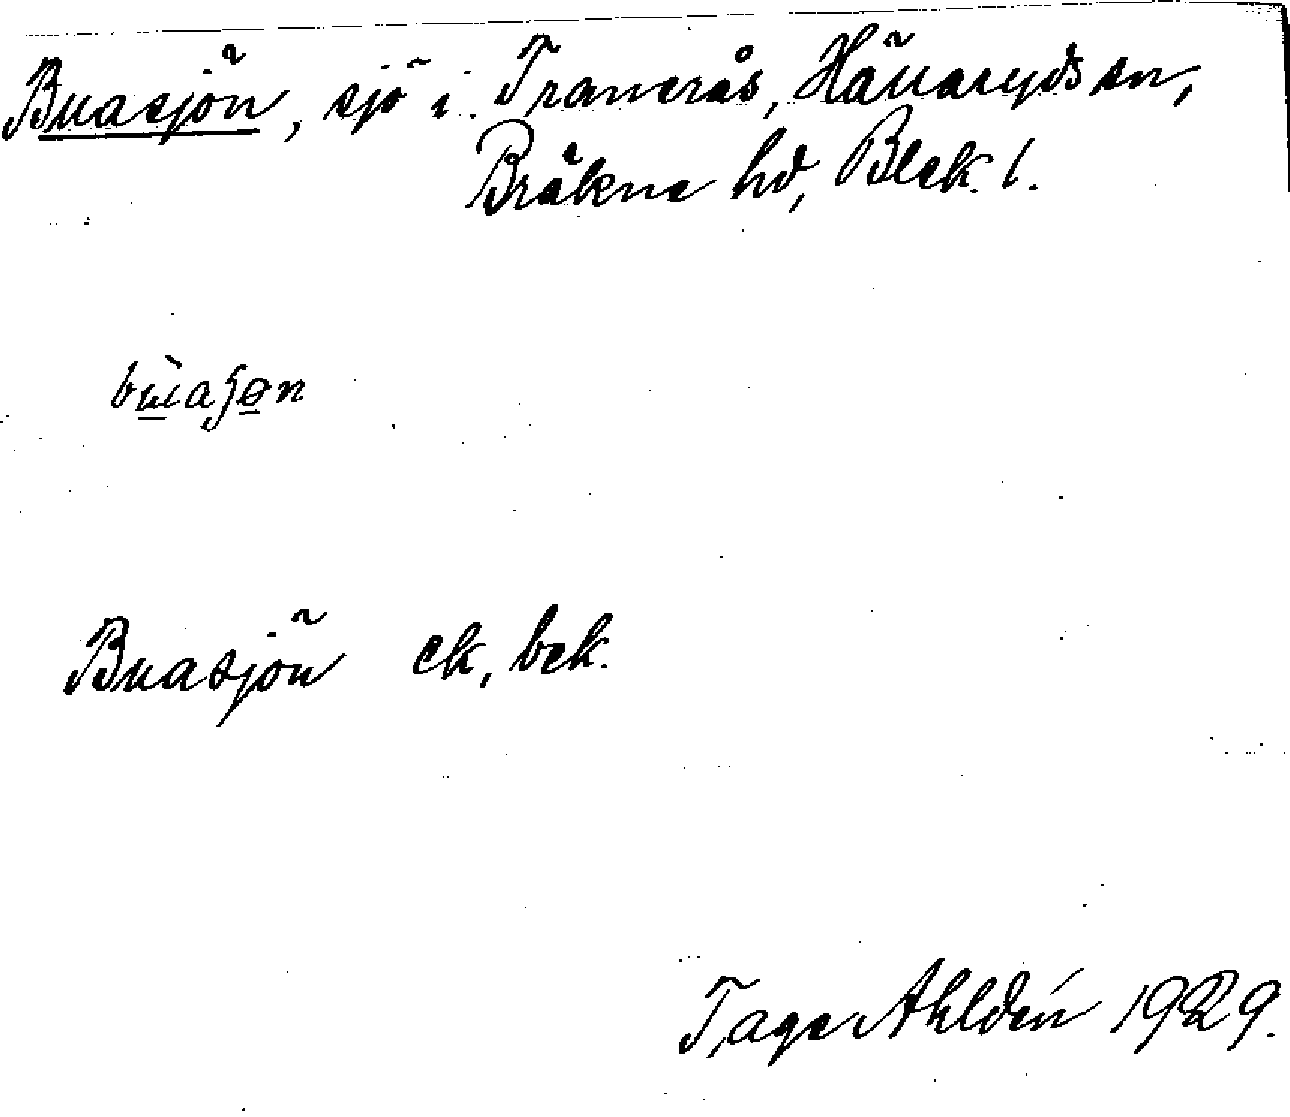 Buasjön, sjö i Tranerås, Hällaryds sn,
Bräkne hd, Blek. l.
Buasjön ek, bek.
Tage Ahldén 1929.